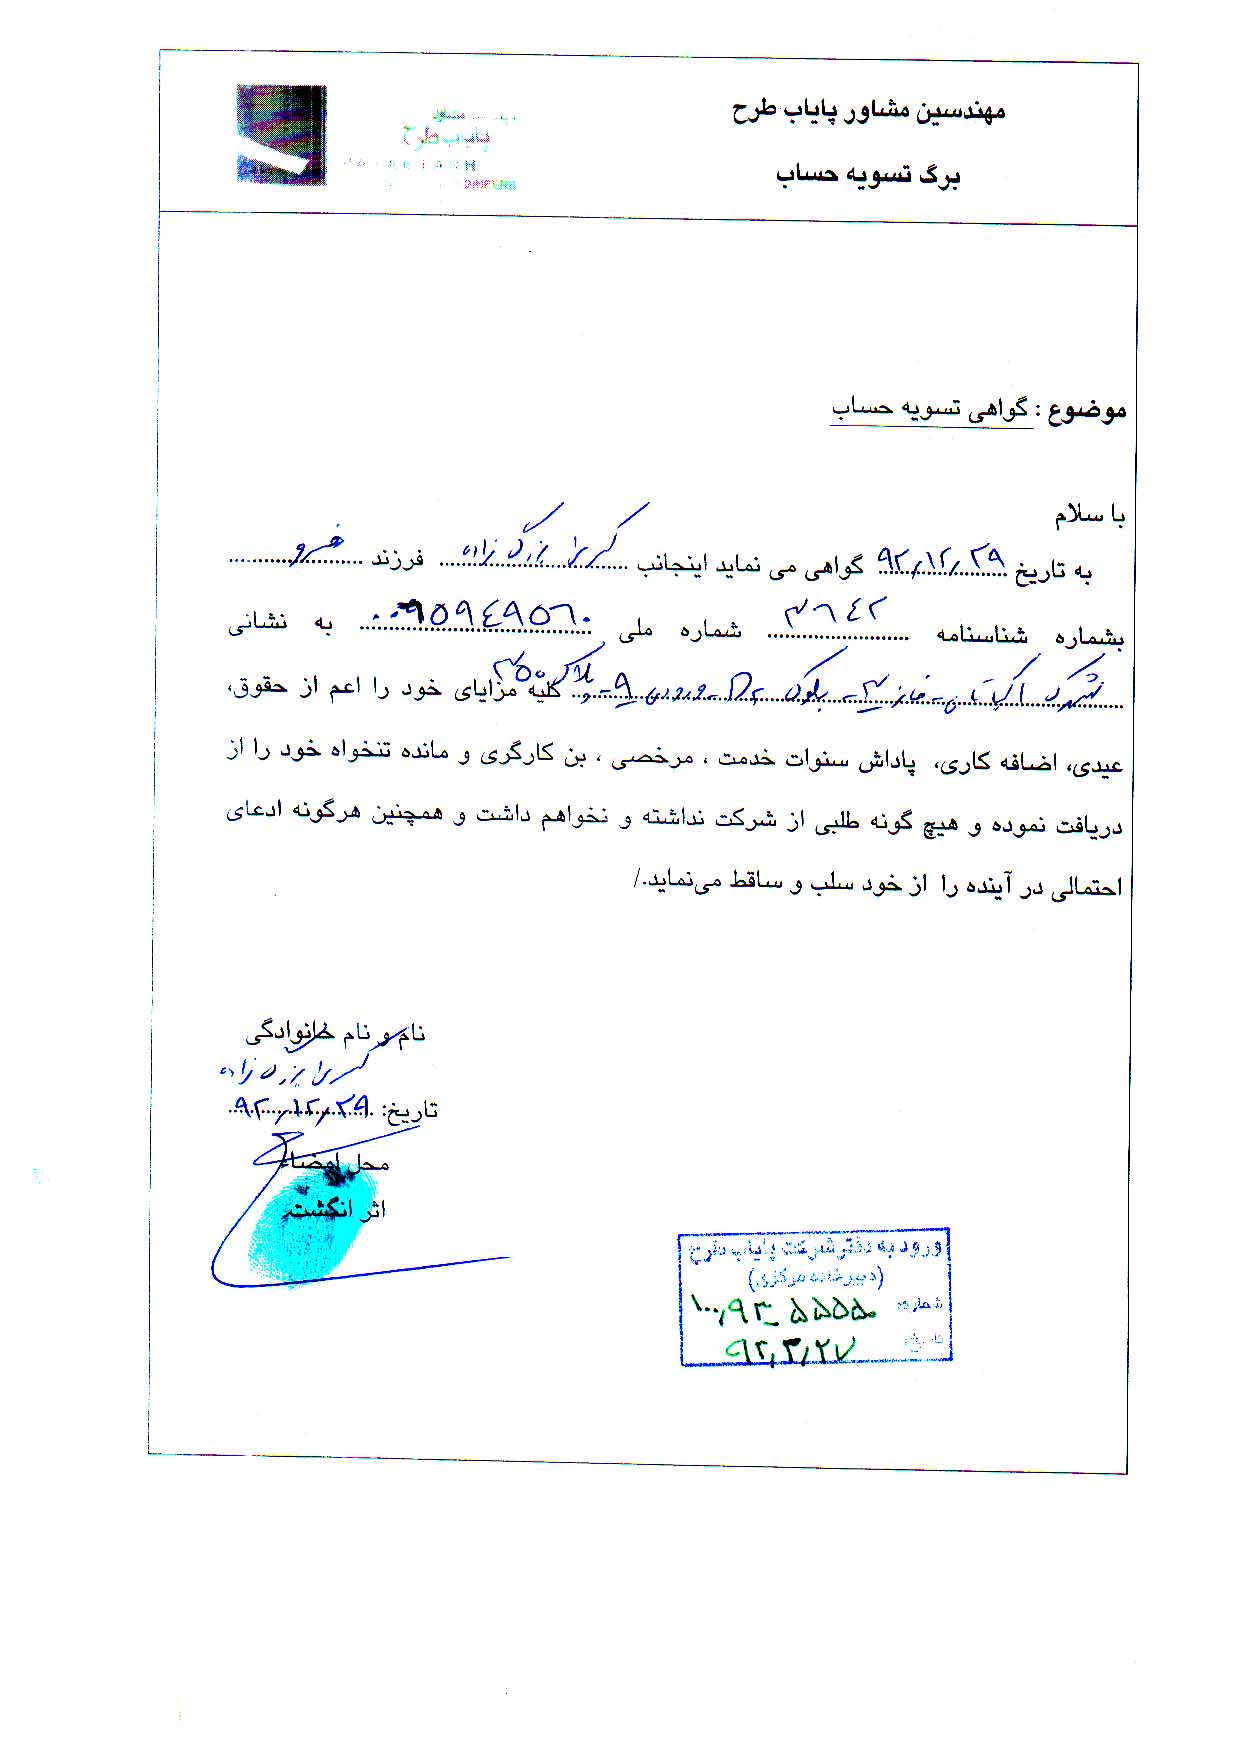 مهندسین مشاور پایاب طرح
برگ تسویه حساب
پایاب طرح
موضوع : گواهی تسویه حساب
با سلام
به تاریخ ۹۲/۱۲/۲۹ گواهی می نماید اینجانب کسرا بزرگ زاده فرزند خسرو
بشماره شناسنامه ۳۶۴۲ شماره ملی به نشانی
شهرک اکباتان - فاز ۳ - بلوک D۲ - ورودی ۹ - پلاک ۳۵۰ کلیه مزایای خود را اعم از حقوق،
عیدی، اضافه کاری، پاداش سنوات خدمت ، مرخصی ، بن کارگری و مانده تنخواه خود را از
دریافت نموده و هیچ گونه طلبی از شرکت نداشته و نخواهم داشت و همچنین هرگونه ادعای
احتمالی در آینده را از خود سلب و ساقط می‌نماید./
نام و نام خانوادگی
کسرا بزرگ زاده
تاریخ: ۹۲/۱۲/۲۹
محل امضاء
اثر انگشت
ورود به دفتر شرکت پایاب طرح
(دبیرخانه مرکزی)
شماره:
تاریخ: